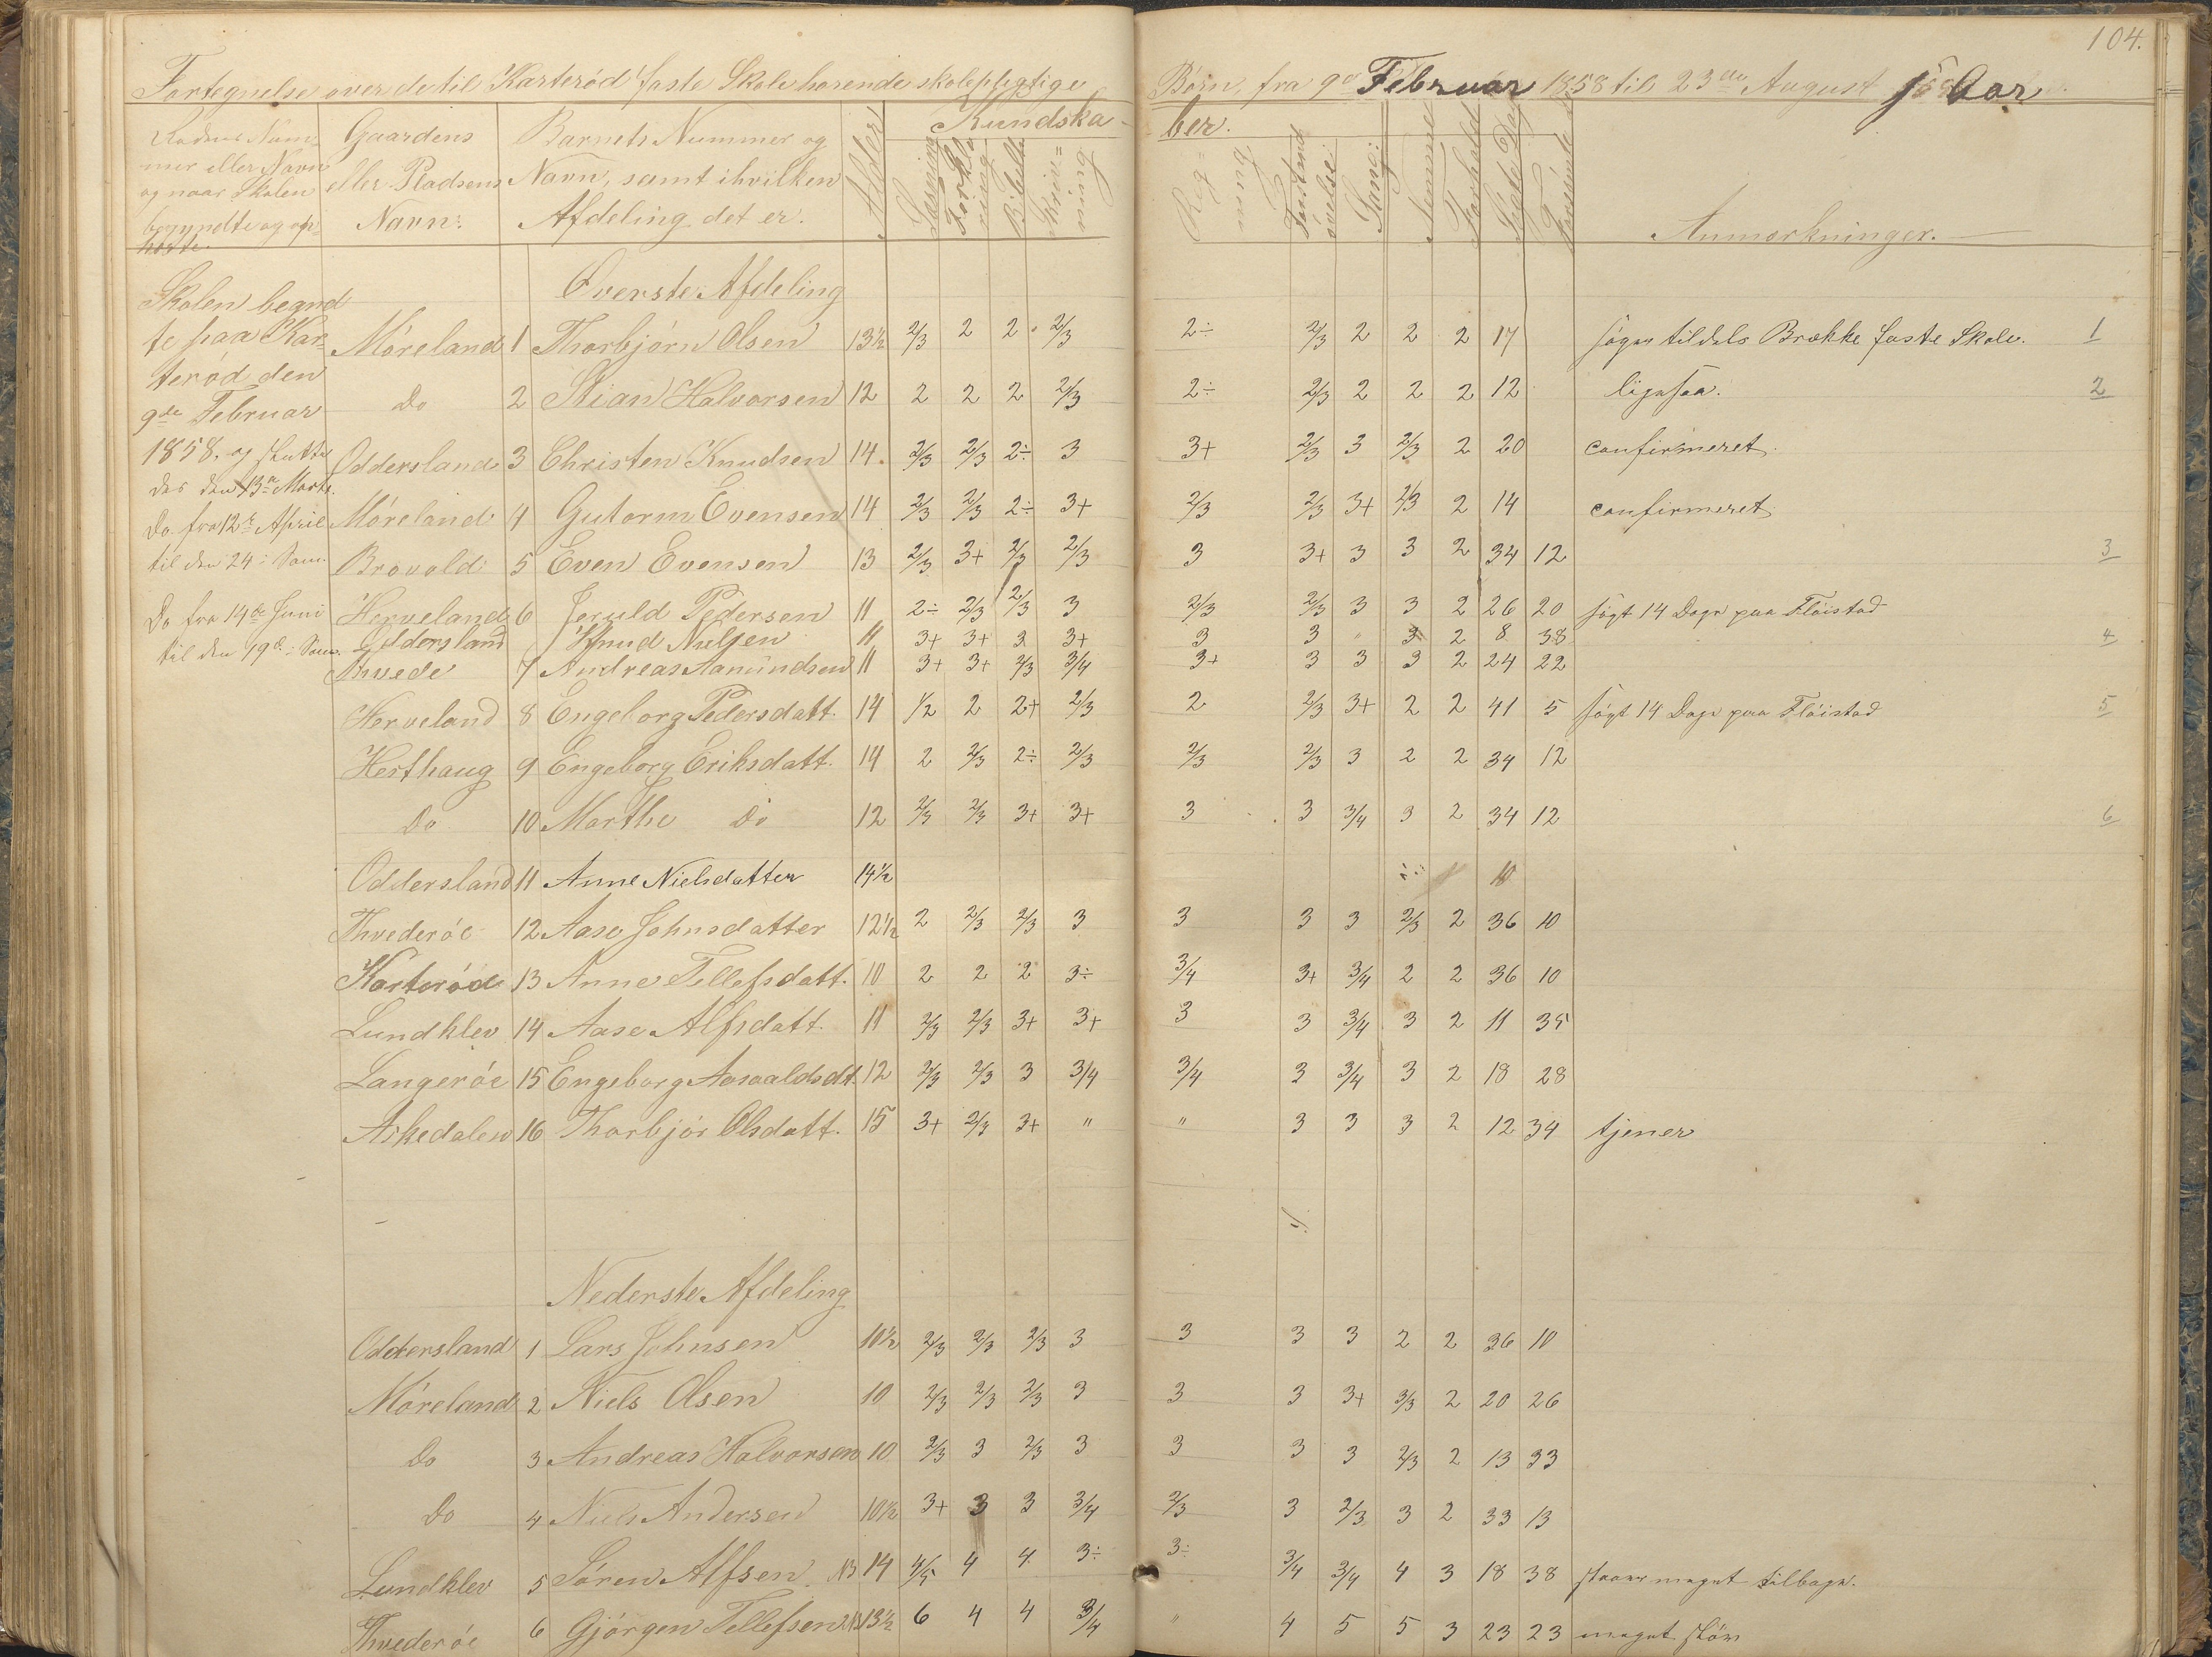 104.
Fortegnelse over de til Karterød faste Skole hørende skolepligtige Børn, fra 9de Februar 1858 til 23de August s Aar.
Rodens Num-
mer eller Navn
og naar Skolen
begyndte og op-
hørte.
Gaardens
eller Pladsens
Navn:
Barnets Nummer og
Navn, samt i hvilken
Afdeling det er.
Alder
Kundska-
ber.
Læsning
Forkla
ring
Bibelh
Skriv=
ning
Reg=
ning
Forstands
øvelse:
Sang:
Nemme
Forhold
Søgte Dage
Forsømte
Anmærkninger.
Skolen begynd
te paa Kar-
terød den
9de Februar
1858. og sluttede
der den 13de Marts.
Do fra 12te April
til den 24de Sam.
Do fra 14de Juni
til den 19de Sam.
Øverste Afdeling
Møreland 1 Thorbjørn Olsen 13½ 2/3 2 2 2/3 2÷ 2/3 2 2 2 17 søger tildels Brække faste Skole. 1
Do 2 Stian Halvorsen 12 2 2 2 2/3 2÷ 2/3 2 2 2 12 ligesaa. 2
Oddersland 3 Christen Knudsen 14 2/3 2/3 2÷ 3 3+ 2/3 3 2/3 2 20 confirmeret
Møreland 4 Gutorm Evensen 14 2/3 2/3 2÷ 3+ 2/3 2/3 3+ 2/3 2 14 confirmeret
Brovold 5 Even Evensen 13 2/3 3+ 2/3 2/3 3 3+ 3 3 2 34 12 3
Herveland 6 Jeruld Pedersen 11 2÷ 2/3 2/3 3 2/3 2/3 3 3 2 26 20 søgt 14 Dage paa Fløistad
Oddersland Knud Nielsen 11 3+ 3+ 3 3+ 3 3 " 3 2 8 38 4
Thvede 7 Andreas Aamundsen 11 3+ 3+ 2/3 3/4 3+ 3 3 3 2 24 22
Herveland 8 Engeborg Pedersdatt. 14 1/2 2 2+ 2/3 2 2/3 3+ 2 2 41 5 søgt 14 Dage paa Fløistad 5
Hesthaug 9 Engeborg Eriksdatt. 14 2 2/3 2÷ 2/3 2/3 2/3 3 2 2 34 12
Do 10 Marthe Do 12 2/3 2/3 3+ 3+ 3 3 3/4 3 2 34 12 6
Oddersland 11 Anne Nielsdatter 14½ 10
Thvederøe 12 Aase Johnsdatter 12½ 2 2/3 2/3 3 3 3 3 2/3 2 36 10
Karterød 13 Anne Tellefsdatt. 10 2 2 2 3÷ 3/4 3+ 3/4 2 2 36 10
Lundklev 14 Aase Alfsdatt. 11 2/3 2/3 3+ 3+ 3 3 3/4 3 2 11 35
Langerøe 15 Engeborg Aasvaldsdt. 12 2/3 2/3 3 3/4 3/4 3 3/4 3 2 18 28
Askedalen 16 Thorbjør Olsdatt. 15 3+ 2/3 3+ " " 3 3 3 2 12 34 tjener
Nederste Afdeling
Oddersland 1 Lars Johnsen 10½ 2/3 2/3 2/3 3 3 3 3 2 2 36 10
Møreland 2 Niels Olsen 10 2/3 2/3 2/3 3 3 3 3+ 2/3 2 20 26
Do 3 Andreas Halvorsen 10 2/3 3 2/3 3 3 3 3 2/3 2 13 33
Do 4 Niels Andersen 10½ 3+ 3 3 3/4 2/3 3 2/3 3 2 33 13
Lundklev 5 Søren Alfsen NB 14 4/5 4 4 3÷ 3÷ 3/4 3/4 4 3 18 38 staaer meget tilbage.
Thvederøe 6 Gjørgen Tellefsen NB 13½ 6 4 4 3/4 " 4 5 5 3 23 23 meget sløv